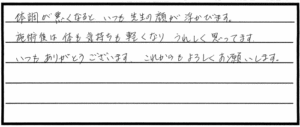 体調が悪くなると いつも先生の顔が浮かびます。
施術後は体も気持ちも軽くなり うれしく思ってます
いつもありがとうございます これからもよろしくお願いします。